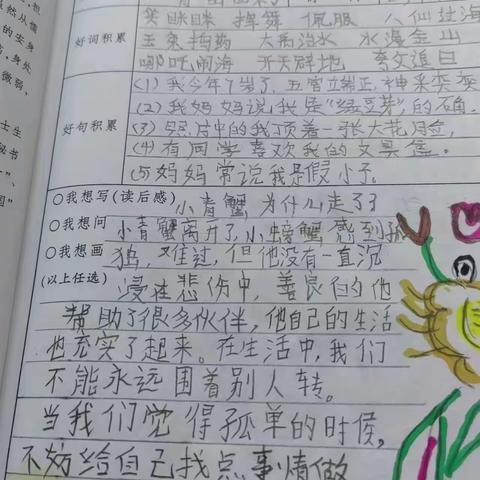 笑眯眯 挥舞 佩服 八仙过海
好词积累
玉兔捣药 大禹治水 水漫金山
哪吒闹海 开天辟地 夸父追日
(1)我今年7岁了,五官端正,神采奕奕
(2)我妈妈说,我是“绿豆芽”,的确。
好句积累
(3)照片中的我顶着一张大花脸,
(4)有同学喜欢我的文具盒。
(5)妈妈常说我是假小子。
○我想写(读后感)
小青蟹为什么走了?
○我想问
小青蟹离开了,小螃蟹感到孤
○我想画
独,难过,但他没有一直沉
(以上任选)
浸在悲伤中,善良的他
帮助了很多伙伴,他自己的生活
也充实了起来。在生活中,我们
不能永远围着别人转。
当我们觉得孤单的时候,
不妨给自己找点事情做